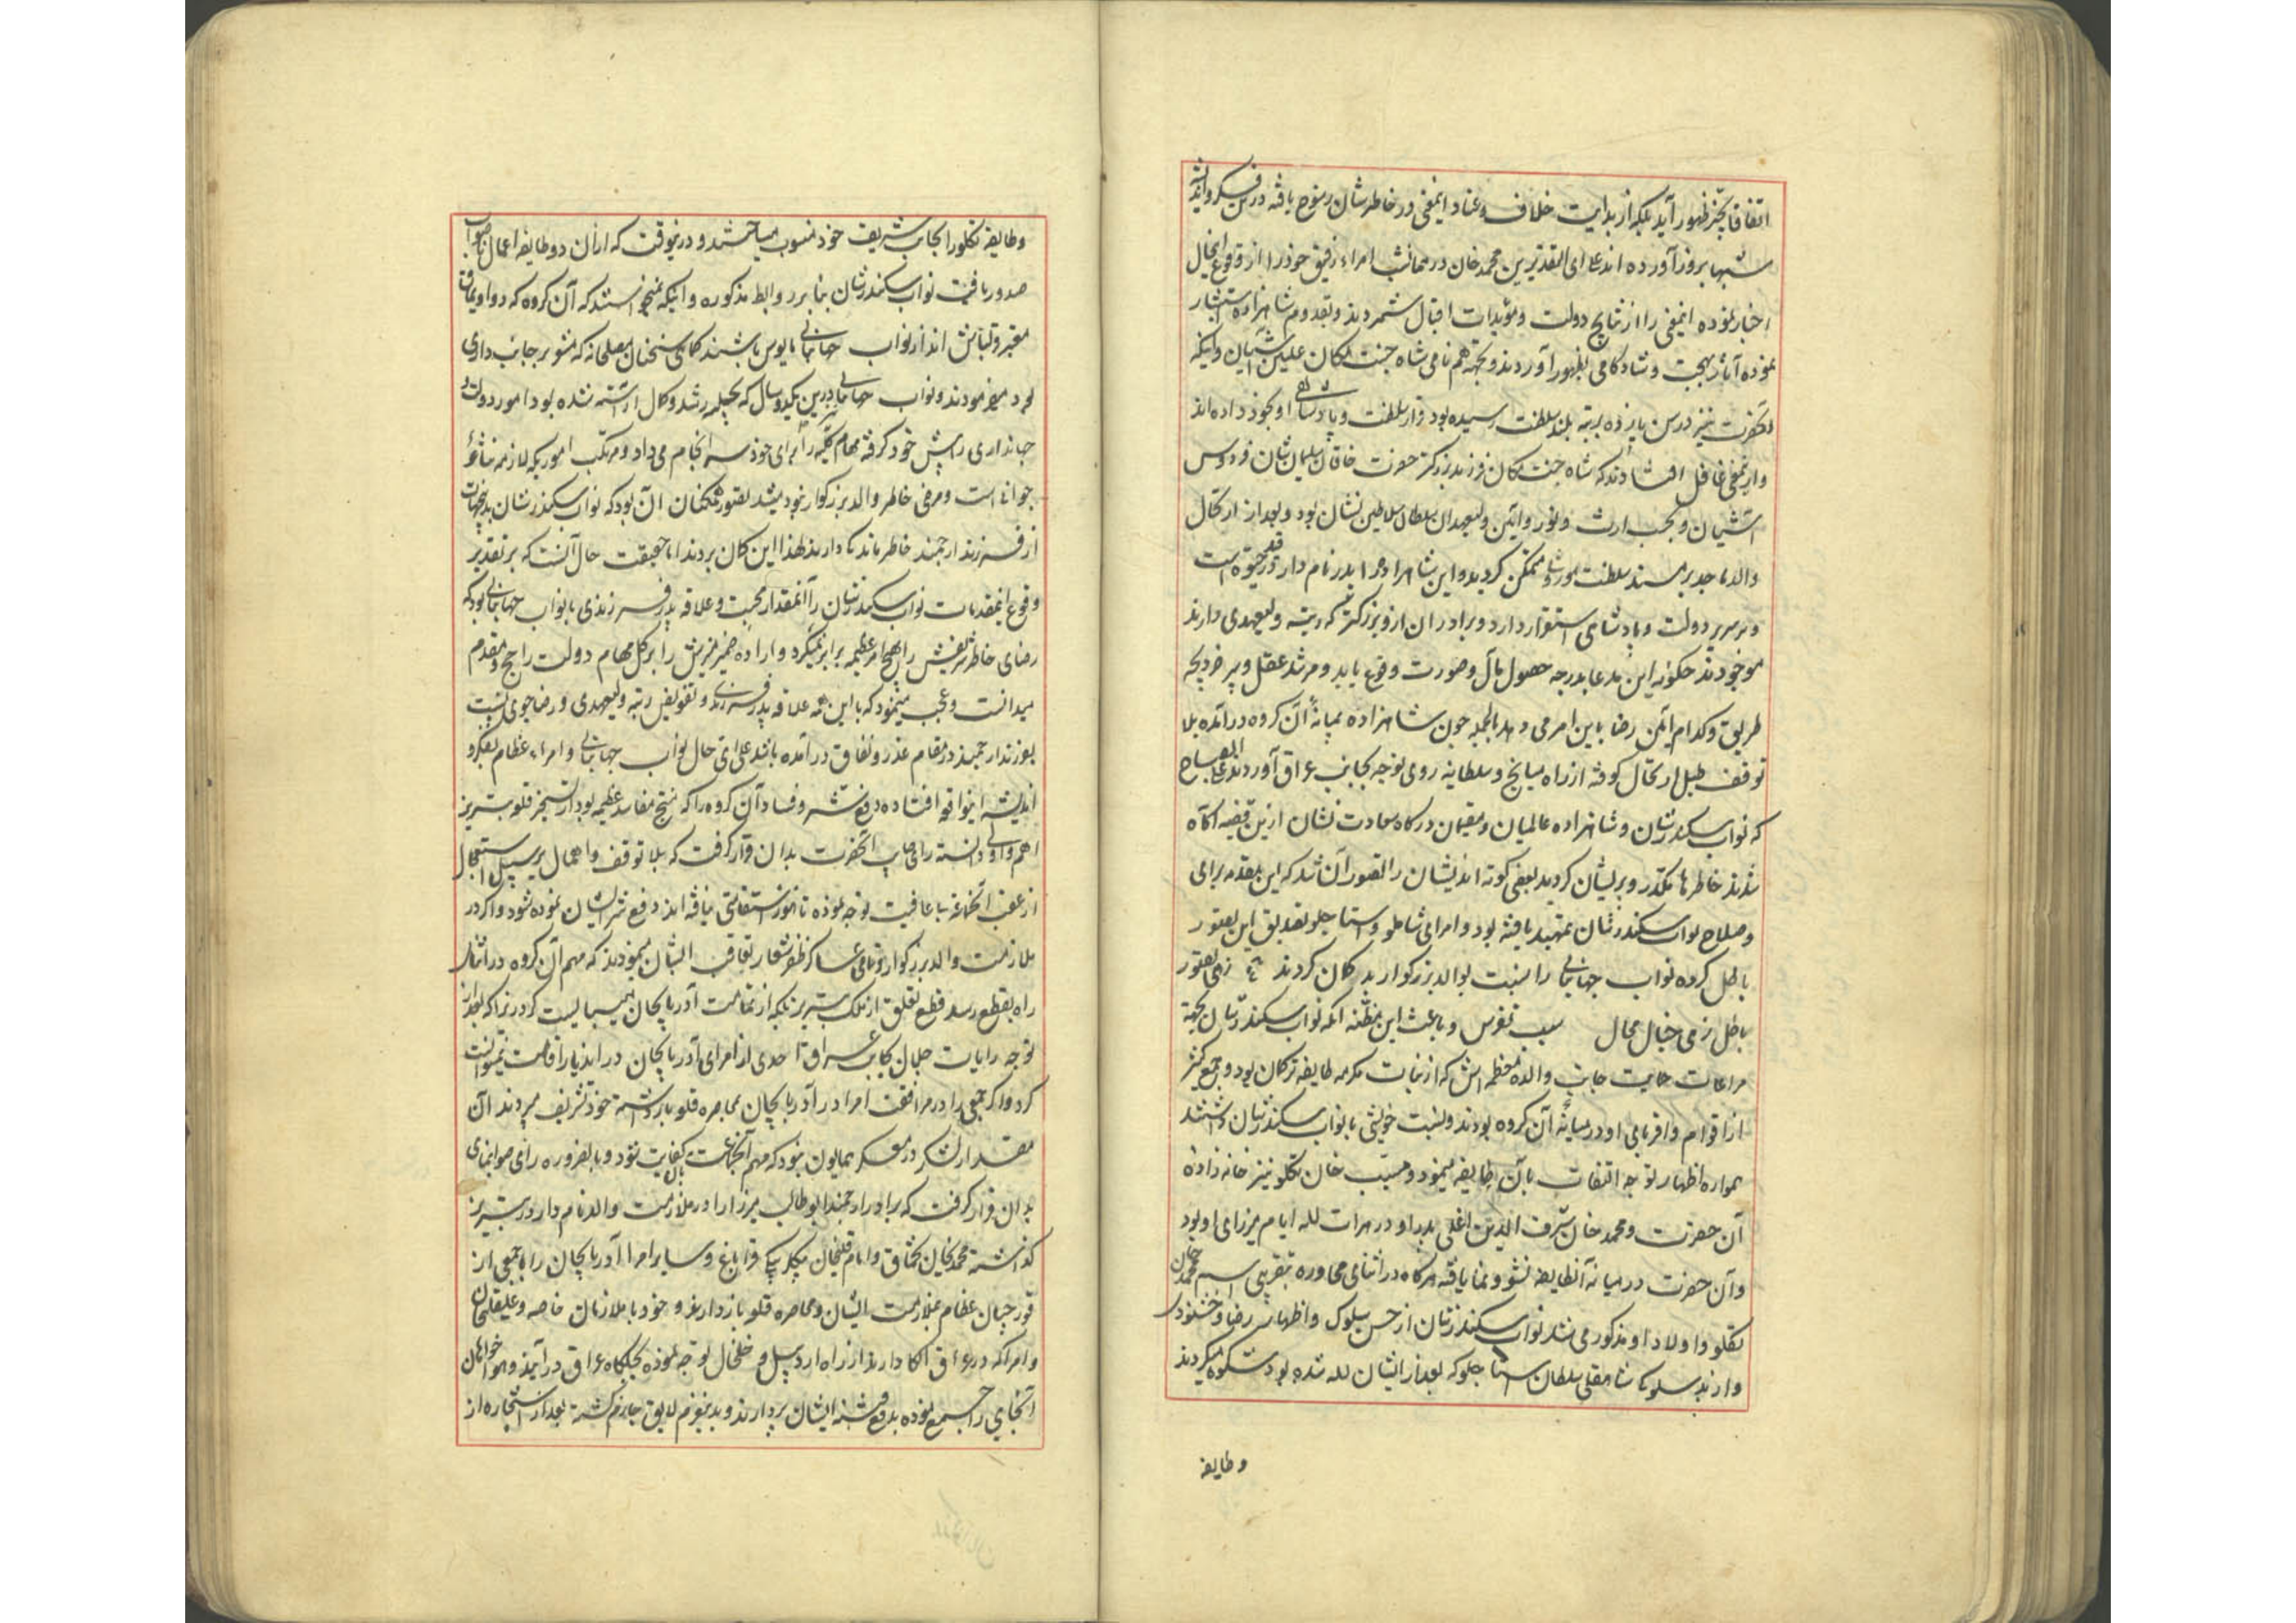 اتفاقا بحیز ظهور آید بلکه از بدایت خلاف و عناد اینمعنی در خاطر شان رسوخ یافته درین فکر و اندیشه
شبها بروز آورده اند علی ای التقدیرین محمد خان در ممانشت امراء رفیق خود را از وقوع اینحال
اخبار نموده اینمعنی را از نتایج دولت و مؤیدات اقبال شمردند و بقدوم شاهزاده استبشار
نموده آثار بهجت و شادکامی بظهور آوردند و بجهة هم نامی شاه جنت مکان علیین آشیان و اینکه
آنحضرت نیز در سن یازده برتبه بلند سلطنت رسیده بود قرار سلطنت و پادشاهی او بخود داده اند
و ازینمعنی غافل افتادند که شاه جنت مکان فرزند بزرگتر حضرت خاقان سلیمان شان فردوس
آشیان و بحسب ارث و توره و آئین ولیعهد آن سلطان سلاطین نشان بود و بعد از ارتحال
والد ماجد بر مسند سلطنت موروثی متمکن گردید و این شاهزاده را پدر نام دار در قید حیوة است
و بر سریر دولت و پادشاهی استقرار دارد و برادران ازو بزرگتر که رتبه ولیعهدی دارند
موجودند چگونه این مدعا بدرجه حصول مآل و صورت وقوع یابد و مرشد عقل و پیر خرد بچه
طریق و کدام آئین رضا باین امر می دهد بالجمله چون شاهزاده بمیانهٔ آن گروه درآمده بلا
توقف طبل ارتحال کوفته از راه میانج و سلطانیه روی توجه بجانب عراق آوردند علی الصباح
که نواب سکندر شان و شاهزاده عالمیان و مقیمان درگاه سعادت نشان ازین قضیه آگاه
شدند خاطرها مکدر و پریشان گردید بعضی کوته اندیشان را تصور آن شد که این مقدمه برای
و صلاح نواب سکندر شان تمهید یافته بود و امرای شاملو و استاجلو تصدیق این تصور
باطل کرده نواب جهانبانی را نسبت بوالد بزرگوار بد گمان کردند ع زهی تصور
باطل زهی خیال محال سبب تفرس و باعث این مظنه آنکه نواب سکندر شان بجهة
مراعات حمایت جانب والده معظمه اش که از بنات مکرمه طایفه ترکمان بود و جمع کثیر
از اقوام و اقربای او در میانهٔ آن گروه بودند و نسبت خویشی بانواب سکندر شان داشتند
همواره اظهار توجه التفات بآن طایفه مینمود و مسیب خان تکلو نیز خانه زاده
آن حضرت و محمد خان شرف الدین اغلی پدر او در هرات لله ایام میرزایی او بود
و آن حضرت در میانهٔ آنطایفه نشو و نما یافته هرگاه در اثنای محاوره بتقریبی اسم محمد خان
تکلو و اولاد او مذکور می شد نواب سکندر شان از حسن سلوک و اظهار رضا و خشنودی
و از بد سلوکی شاهقلی سلطان استاجلو که بعد از ایشان لله شده بود شکوه میکردند
وطایفه
وطایفه تکلو را بجانب شریف خود منسوب میساختند و درینوقت که از آن دو طایفه اعمال ناصواب
صدور یافت نواب سکندر شان بنا بر روابط مذکوره و اینکه نمیخواستند که آن گروه که دو اویماق
معتبر قزلباش اند از نواب جهانبانی مایوس باشند گاهی سخنان مصلحانه که مشعر بر جانب داری
بود میفرمودند و نواب جهانبانی درین یکدو سال که بحیله رشد و کمال آراسته شده بود امور دولت
جهانداری را پیش خود گرفته مهام کلیه را برای خود سرانجام می داد و مرتکب اموریکه لازمه نشأهٔ
جوانی است و مرضی خاطر والد بزرگوار نبود میشد تصور همکنان آن بود که نواب سکندر شان بدینجهات
از فرزند ارجمند خاطر ماندگی دارند لهذا این گمان بردند اما حقیقت حال آنست که بر تقدیر
وقوع اینمقدمات نواب سکندر شان را آنمقدار محبت و علاقه پدر فرزندی بانواب جهانبانی بود که
رضای خاطر شریفش را بهیچ امر عظیمه برابر نمیکرد و اراده ضمیر منیرش را بر کل مهام دولت راجح و مقدم
میدانست و عجب مینمود که با این همه علاقه پدر فرزندی و تفویض رتبه ولیعهدی و رضاجوی نسبت
بفرزند ارجمند در مقام غدر و نفاق درآمده باشد علی ای حال نواب جهانبانی و امراء عظام بفکر و
اندیشه اینواقعه افتاده دفع شر و فساد آن گروه را که منتج مفاسد عظیمه بود از تسخیر قلعه تبریز
اهم و اولی دانسته رای صایب آنحضرت بدان قرار گرفت که بلا توقف و اهمال بر سبیل استعجال
از عقب آنجماعة با عاقبت توجه نموده تا هنوز استقامتی نیافته اند دفع شر ایشان نموده شود و اگر در
ملازمت والد بزرگوار و تمامی عساکر ظفر شعار تعاقب ایشان مینمودند که مهم آن گروه در اثنای
راه بقطع رسد قطع تعلق از ملک تبریز بلکه از تمامت آذربایجان میبایست کرد زیرا که بعد از
توجه رایات جلال بجانب عراق احدی از امرای آذربایجان در اندیار اقامت نمیتوانست
کرد و اگر جمعی را در مرافقت امراء در آذربایجان بمحاصره قلعه بازداشته خود تشریف میبردند آن
مقدار لشکر در معسکر همایون نبود که مهم آنجماعت بآن کفایت شود و بالضروره رای صوابنمای
بدان قرار گرفت که برادر ارجمند ابوطالب میرزا را در ملازمت والد نام دار در تبریز
گذاشته محمدیخان تخماق و امامقلیخان بیکلربیکی قراباغ و سایر امرا آذربایجان را با جمعی از
قورچیان عظام بملازمت ایشان و محاصره قلعه بازدارند و خود با ملازمان خاصه و علیقلیخان
و امرا که در عراق الکا دارند از راه اردبیل و خلخال توجه نموده بجلکاه عراق درآیند و هواخواهان
آنجایی را جمع نموده بدفع فتنه ایشان پردازند و بدینعزم لایق جازم گشته بعد از استخاره از